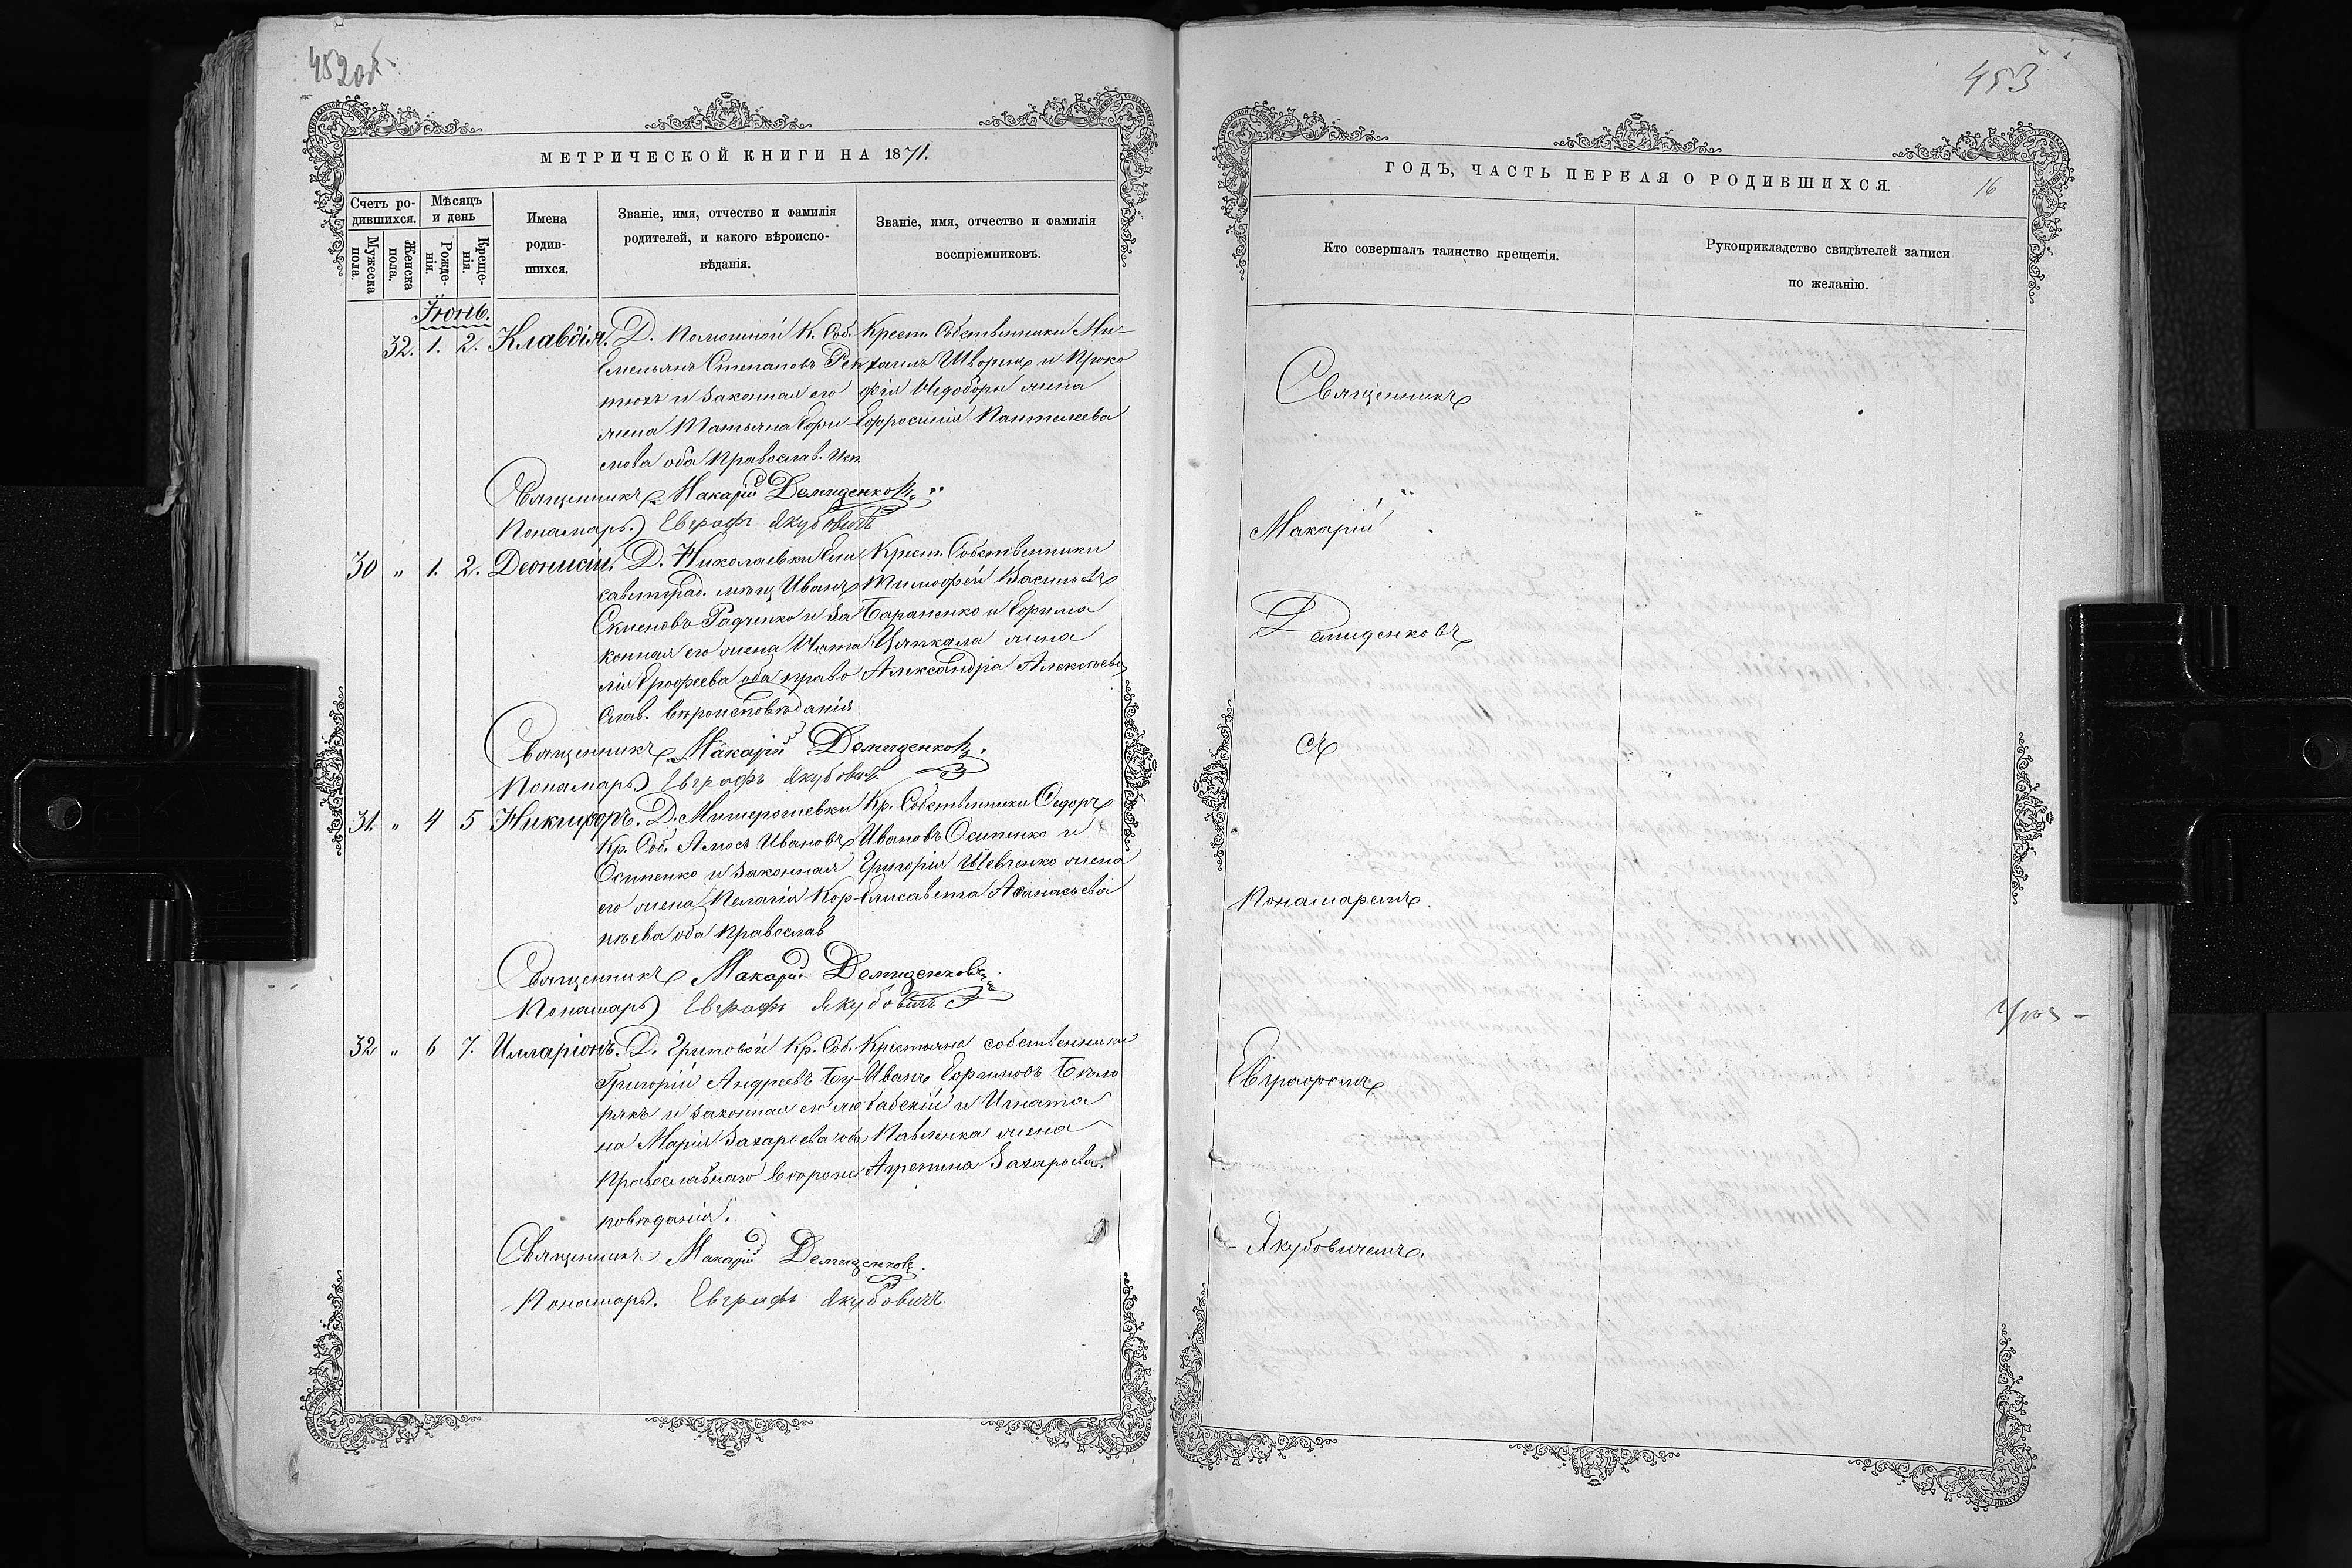 452об
МЕТРИЧЕСКОЙ КНИГИ НА 1871.
Счетъ ро-
дившихся.
Мужеска
пола.
Женска
пола.
Мѣсяцъ
и день
Рожде-
нія.
Креще-
нія.
Имена
родив-
шихся.
Званіе, имя, отчество и фамилія
родителей, и какого вѣроиспо-
вѣданія.
Званіе, имя, отчество и фамилія
воспріемниковъ.
Іюнь.
32. 1. 2. Клавдія. Д. Помошной К. Соб.
Емельянъ Степановъ Рек
тюхъ и законная его
жена Татьяна Ефи-
мова оба Православ. Исп.
Крест. Собственники Ми-
хаилъ Шворец и Проко
фія Недоборы жена
Ефросинія Пантелеева
Священникъ Макарій Демиденковъ.
Пономарь Евграфъ Якубовичъ
30 " 1. 2. Деонисій. Д. Николаевки Ели
саветград. мѣщ Иванъ
Семеновъ Радченко и за
конная его жена Ната
лія Ерофеева оба право
слав. вѣроисповѣданія
Крест. Собственники
Тимофей Васильевъ
Бараненко и Ефима
Цяпкала жена
Александра Алексѣева
Священникъ Макарій Демиденковъ.
Пономарь Евграфъ Якубовичъ.
31. " 4 5 Никифоръ. Д. Митрошевки
Кр. Соб. Амосъ Ивановъ
Осипенко и законная
его жена Пелагія Кор-
нѣева оба Православ
Кр. Собственники Ѳедоръ
Ивановъ Осипенко и
Григорія Шевченко жена
Елисавета Аѳанасьева
Священникъ Макарій Демиденковъ.
Пономарь Евграфъ Якубовичъ
32 " 6 7. Илларіонъ. Д. Гриповой Кр. Соб.
Григорій Андреевъ Бу-
рякъ и законная его же
на Марія Захарьева оба
Православнаго вѣроис
повѣданія.
Крестьяне собственники
Иванъ Ефимовъ Бѣло
бабскій и Игната
Павленка жена
Агрепина Захарова.
Священникъ Макарій Демиденковъ.
Пономарь. Евграфъ Якубовичъ.
453
ГОДЪ, ЧАСТЬ ПЕРВАЯ О РОДИВШИХСЯ.
16
Кто совершалъ таинство крещенія.
Рукоприкладство свидѣтелей записи
по желанію.
Священникъ
Макарій
Демиденковъ
съ
Пономаремъ.
Евграфомъ
Якубовичемъ.